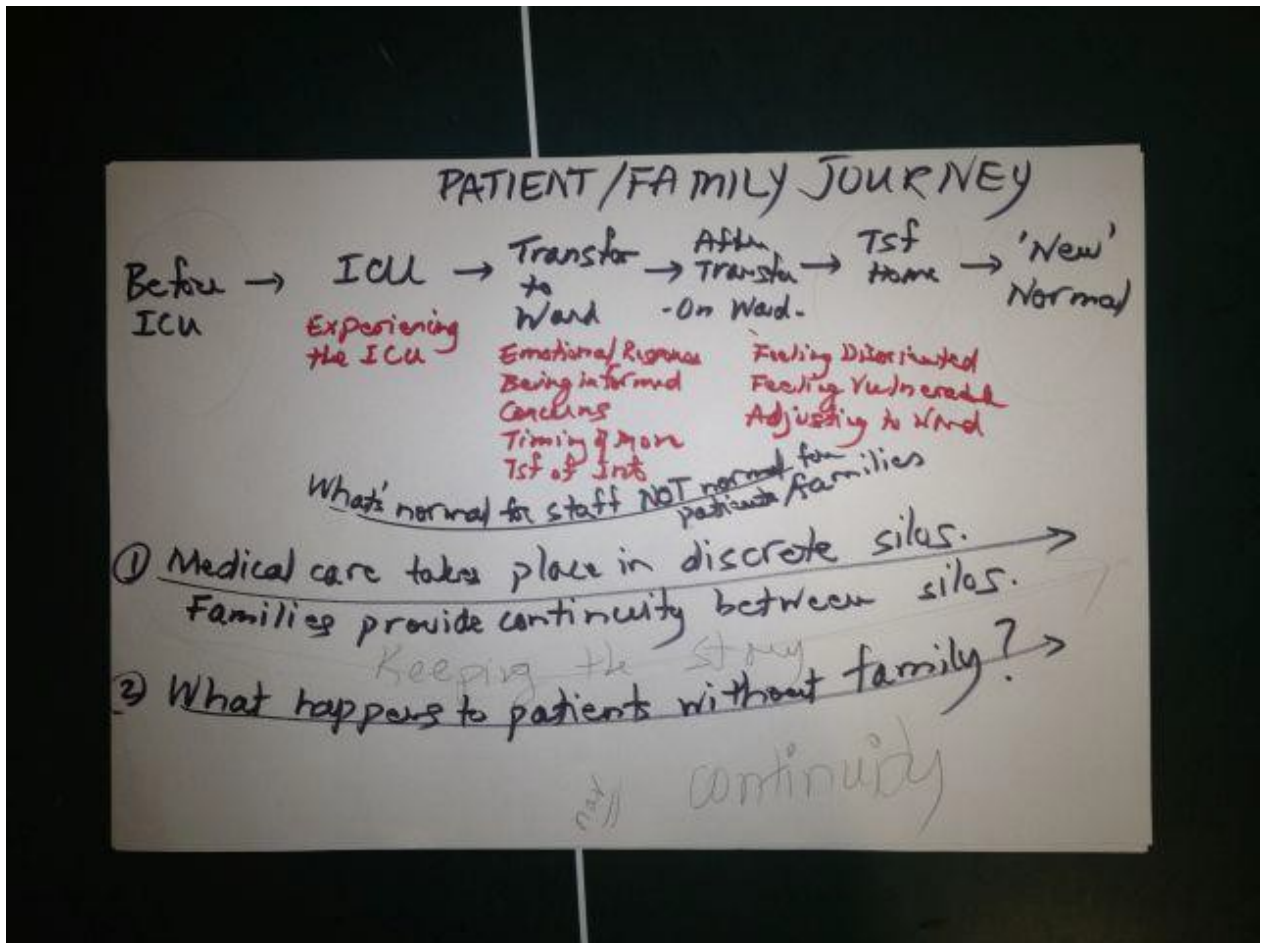 PATIENT/FAMILY JOURNEY
Before ICU → ICU → Transfer to Ward → After Transfer - On Ward - → Tsf Home → 'New' Normal
Experiencing
the ICU
Emotional Response
Being informed
Concerns
Timing of
Tsf of
Feeling Disoriented
Feeling Vulnerable
Adjusting to Ward
What's normal for staff NOT normal for
patients/families
① Medical care takes place in discrete silos. →
Families provide continuity between silos.
Keeping the story
② What happens to patients without family? →
continuity